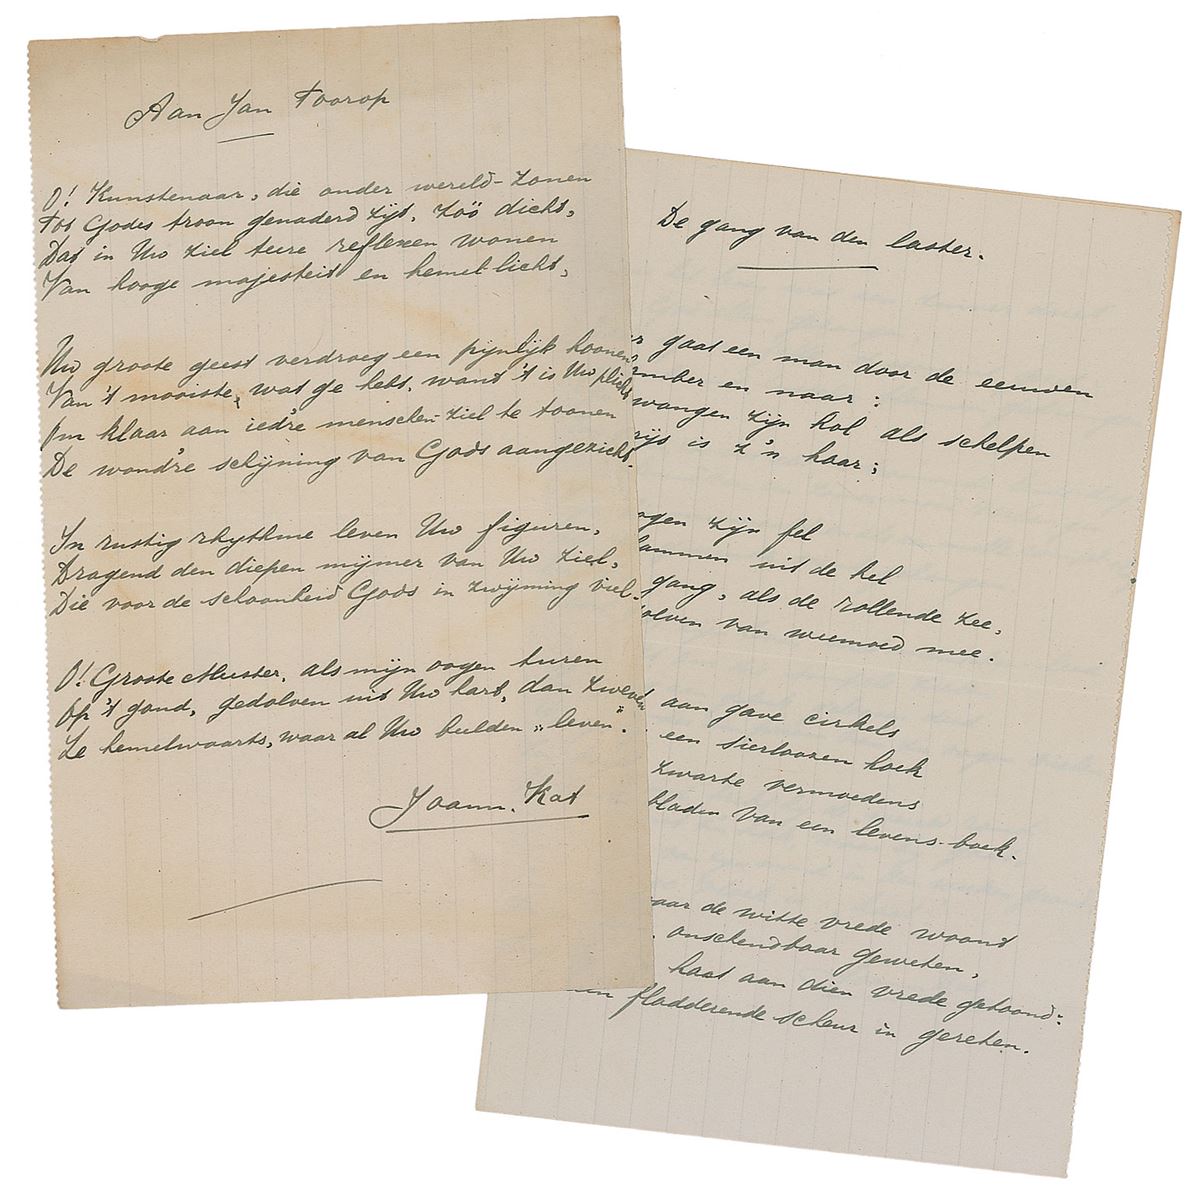 Aan Jan Toorop
O! Kunstenaar, die onder wereld-zonen
Tot Godes troon genaderd zijt, zóó dicht,
Dat in Uw ziel teere reflexen wonen
Van hooge majesteit en hemel-licht,
Uw groote geest verdroeg een pijnlijk hoonen
Van 't mooiste, wat ge hebt, want 't is Uw plicht
Om klaar aan ied're menschen-ziel te toonen
De wond're schijning van Gods aangezicht.
In rustig rhythme leven Uw figuren,
Dragend den diepen mijmer van Uw ziel,
Die voor de schoonheid Gods in zwijming viel.
O! Groote Meester, als mijn oogen turen
Op 't goud, gedolven uit Uw hart, dan zweven
Ze hemelwaarts, waar al Uw beelden „leven".
Joann. Kat
De gang van den laster.
gaat een man door de eeuwen
en naar:
wangen zijn hol als schelpen
is z'n haar;
zijn fel
uit de hel
gang, als de rollende zee,
van weemoed mee.
aan gave cirkels
een sierloozen hoek
zwarte vermoedens
bladen van een levens-boek.
de witte vrede woont
onschendbaar geweten,
haat aan dien vrede getoond:
fladderende scheur in gereten.